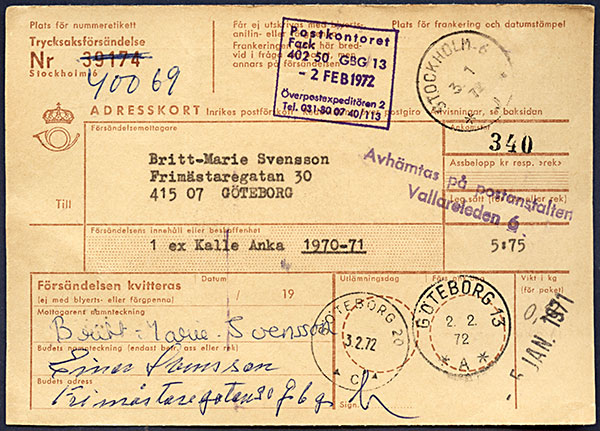 Plats för nummeretikett
Trycksaksförsändelse
Nr 39174
Stockholm6
40069
Får ej utskrivas med blyerts-,
anilin- eller
Frankeringen
vid i fråga
nars på försändelsen
Postkontoret
Fack
402 50 GBG/13
- 2 FEB 1972
Överpostexpeditören 2
Tel. 031-80 07 40/113
Plats för frankering och datumstämpel
STOCKHOLM-6
3 1
72
ADRESSKORT
Inrikes postför
Postgiro
visningar, se baksidan
Försändelsemottagare
Ankomstnr
340
Assbelopp kr resp.
Britt-Marie Svensson
Frimästaregatan 30
415 07 GÖTEBORG
Till
Avhämtas på postanstalten
Vallareleden 6
Försändelsens innehåll eller beskaffenhet
1 ex Kalle Anka 1970-71
5:75
Försändelsen kvitteras
(ej med blyerts- eller färgpenna)
Datum
/ 19
Utlämningsdag
Vikt i kg
(för paket)
Mottagarens namnteckning
Britt-Marie Svensson
Budets namnteckning (endast bud, ass eller rek)
Einar Svensson
Budets adress
Frimästaregatan 30 Gbg
GÖTEBORG 20
3.2.72
C
Sign.
GÖTEBORG 13
2. 2.
72
* A *
5 JAN. 1971